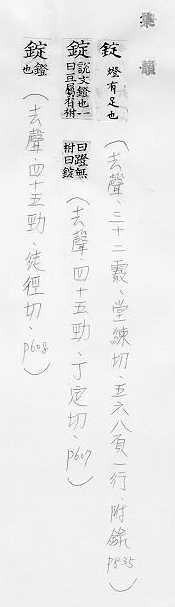 集韻
錠 燈有足也(去聲、三十二霰、堂練切、五六八頁一行、附錄 P535)
錠 說文鐙也一曰豆屬有柎曰鐙無柎曰錠(去聲、四十五勁、丁定切、P607)
錠 鐙也(去聲、四十五勁、徒徑切、P608)